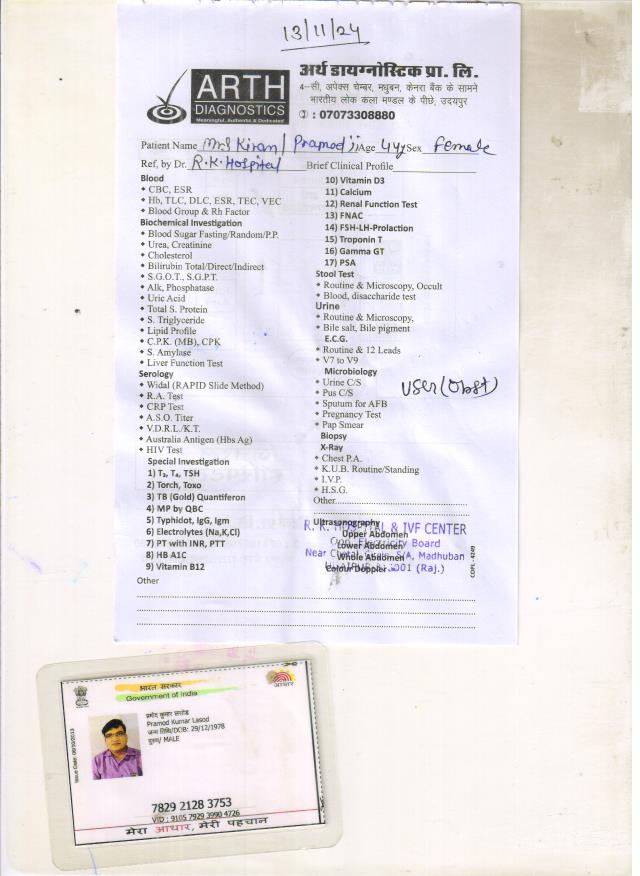 13/11/24
ARTH
DIAGNOSTICS
Meaningful, Authentic & Dedicated
अर्थ डायग्नोस्टिक प्रा. लि.
4-सी, अपेक्स चेम्बर, मधुबन, केनरा बैंक के सामने
भारतीय लोक कला मण्डल के पीछे, उदयपुर
: 07073308880
Patient Name Mrs Kiran / Pramod ji Age 44y Sex Female
Ref, by Dr. R.K. Hospital Brief Clinical Profile
Blood
CBC, ESR
Hb, TLC, DLC, ESR, TEC, VEC
Blood Group & Rh Factor
Biochemical Investigation
Blood Sugar Fasting/Random/P.P.
Urea, Creatinine
Cholesterol
Bilirubin Total/Direct/Indirect
S.G.O.T., S.G.P.T.
Alk, Phosphatase
Uric Acid
Total S. Protein
S. Triglyceride
Lipid Profile
C.P.K. (MB), CPK
S. Amylase
Liver Function Test
Serology
Widal (RAPID Slide Method)
R.A. Test
CRP Test
A.S.O. Titer
V.D.R.L./K.T.
Australia Antigen (Hbs Ag)
HIV Test
Special Investigation
1) T₃, T₄, TSH
2) Torch, Toxo
3) TB (Gold) Quantiferon
4) MP by QBC
5) Typhidot, IgG, Igm
6) Electrolytes (Na,K,Cl)
7) PT with INR, PTT
8) HB A1C
9) Vitamin B12
Other
10) Vitamin D3
11) Calcium
12) Renal Function Test
13) FNAC
14) FSH-LH-Prolaction
15) Troponin T
16) Gamma GT
17) PSA
Stool Test
Routine & Microscopy, Occult
Blood, disaccharide test
Urine
Routine & Microscopy,
Bile salt, Bile pigment
E.C.G.
Routine & 12 Leads
V7 to V9
Microbiology
Urine C/S
Pus C/S
Sputum for AFB
Pregnancy Test
Pap Smear
USG (Obst)
Biopsy
X-Ray
Chest P.A.
K.U.B. Routine/Standing
I.V.P.
H.S.G.
Other
Ultrasonography
Upper Abdomen
Lower Abdomen
Whole Abdomen
Colour Doppler
R. K. HOSPITAL & IVF CENTER
Opp. Electricity Board
Near 5/A, Madhuban
001 (Raj.)
COPL - 4249
भारत सरकार
Government of India
आधार
Issue Date: 06/10/2013
Pramod Kumar Lasod
जन्म तिथि/DOB: 29/12/1978
पुरुष/ MALE
7829 2128 3753
VID : 9105 7929 3990 4726
मेरा आधार, मेरी पहचान